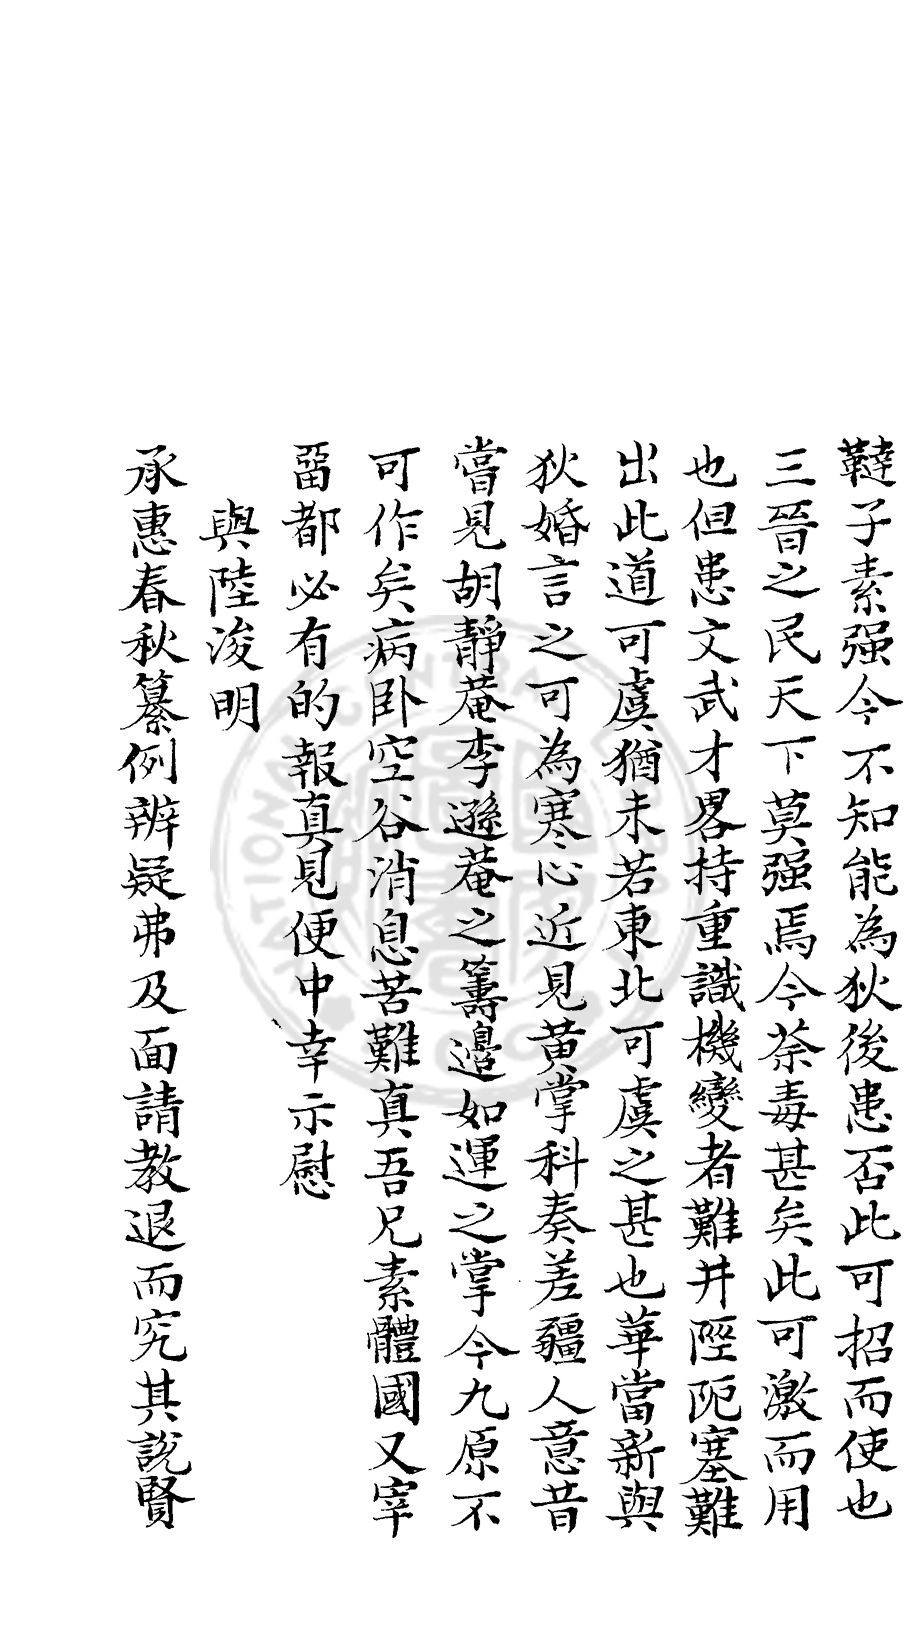 韃子素强今不知能為狄後患否此可招而使也
三晉之民天下莫强焉今荼毒甚矣此可激而用
也但患文武才畧持重識機變者難井陘阨塞難
出此道可虞猶未若東北可虞之甚也華當新與
狄婚言之可為寒心近見黄掌科奏差疆人意昔
嘗見胡靜菴李遜菴之籌邉如運之掌今九原不
可作矣病卧空谷消息苦難真吾兄素體國又宰
畱都必有的報真見便中幸示慰
與陸浚明
承惠春秋纂例辨疑弗及面請教退而究其説賢
NATIONAL CENTRAL